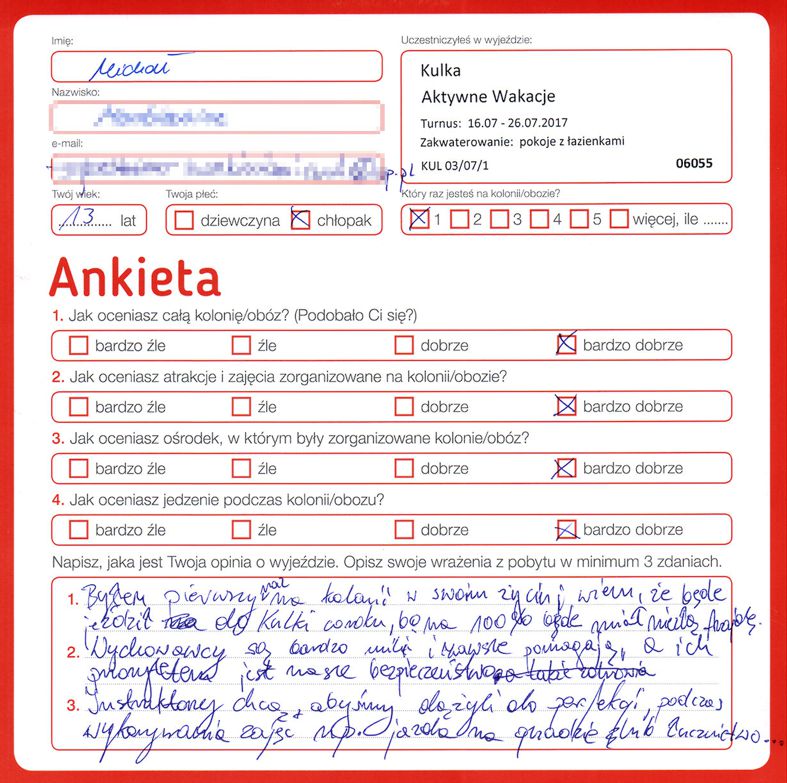 Imię:
Michał
Uczestniczyłeś w wyjeździe:
Kulka
Aktywne Wakacje
Turnus: 16.07 - 26.07.2017
Zakwaterowanie: pokoje z łazienkami
KUL 03/07/1 06055
Nazwisko:
e-mail:
Twój wiek:
13 lat
Twoja płeć:
dziewczyna chłopak
Który raz jesteś na kolonii/obozie?
1 2 3 4 5 więcej, ile .......
Ankieta
1. Jak oceniasz całą kolonię/obóz? (Podobało Ci się?)
bardzo źle źle dobrze bardzo dobrze
2. Jak oceniasz atrakcje i zajęcia zorganizowane na kolonii/obozie?
bardzo źle źle dobrze bardzo dobrze
3. Jak oceniasz ośrodek, w którym były zorganizowane kolonie/obóz?
bardzo źle źle dobrze bardzo dobrze
4. Jak oceniasz jedzenie podczas kolonii/obozu?
bardzo źle źle dobrze bardzo dobrze
Napisz, jaka jest Twoja opinia o wyjeździe. Opisz swoje wrażenia z pobytu w minimum 3 zdaniach.
1. Byłem pierwszy raz na kolonii w swoim życiu i wiem, że będę
jeździł do Kulki co roku, bo na 100% będę miał miłą
2. Wychowawcy są bardzo mili i zawsze pomagają, a ich
priorytetem jest nasze bezpieczeństwo
3. Instruktorzy chcą, abyśmy dążyli do perfekcji, podczas
wykonywania zajęć np. jazda na quadzie, łucznictwo...